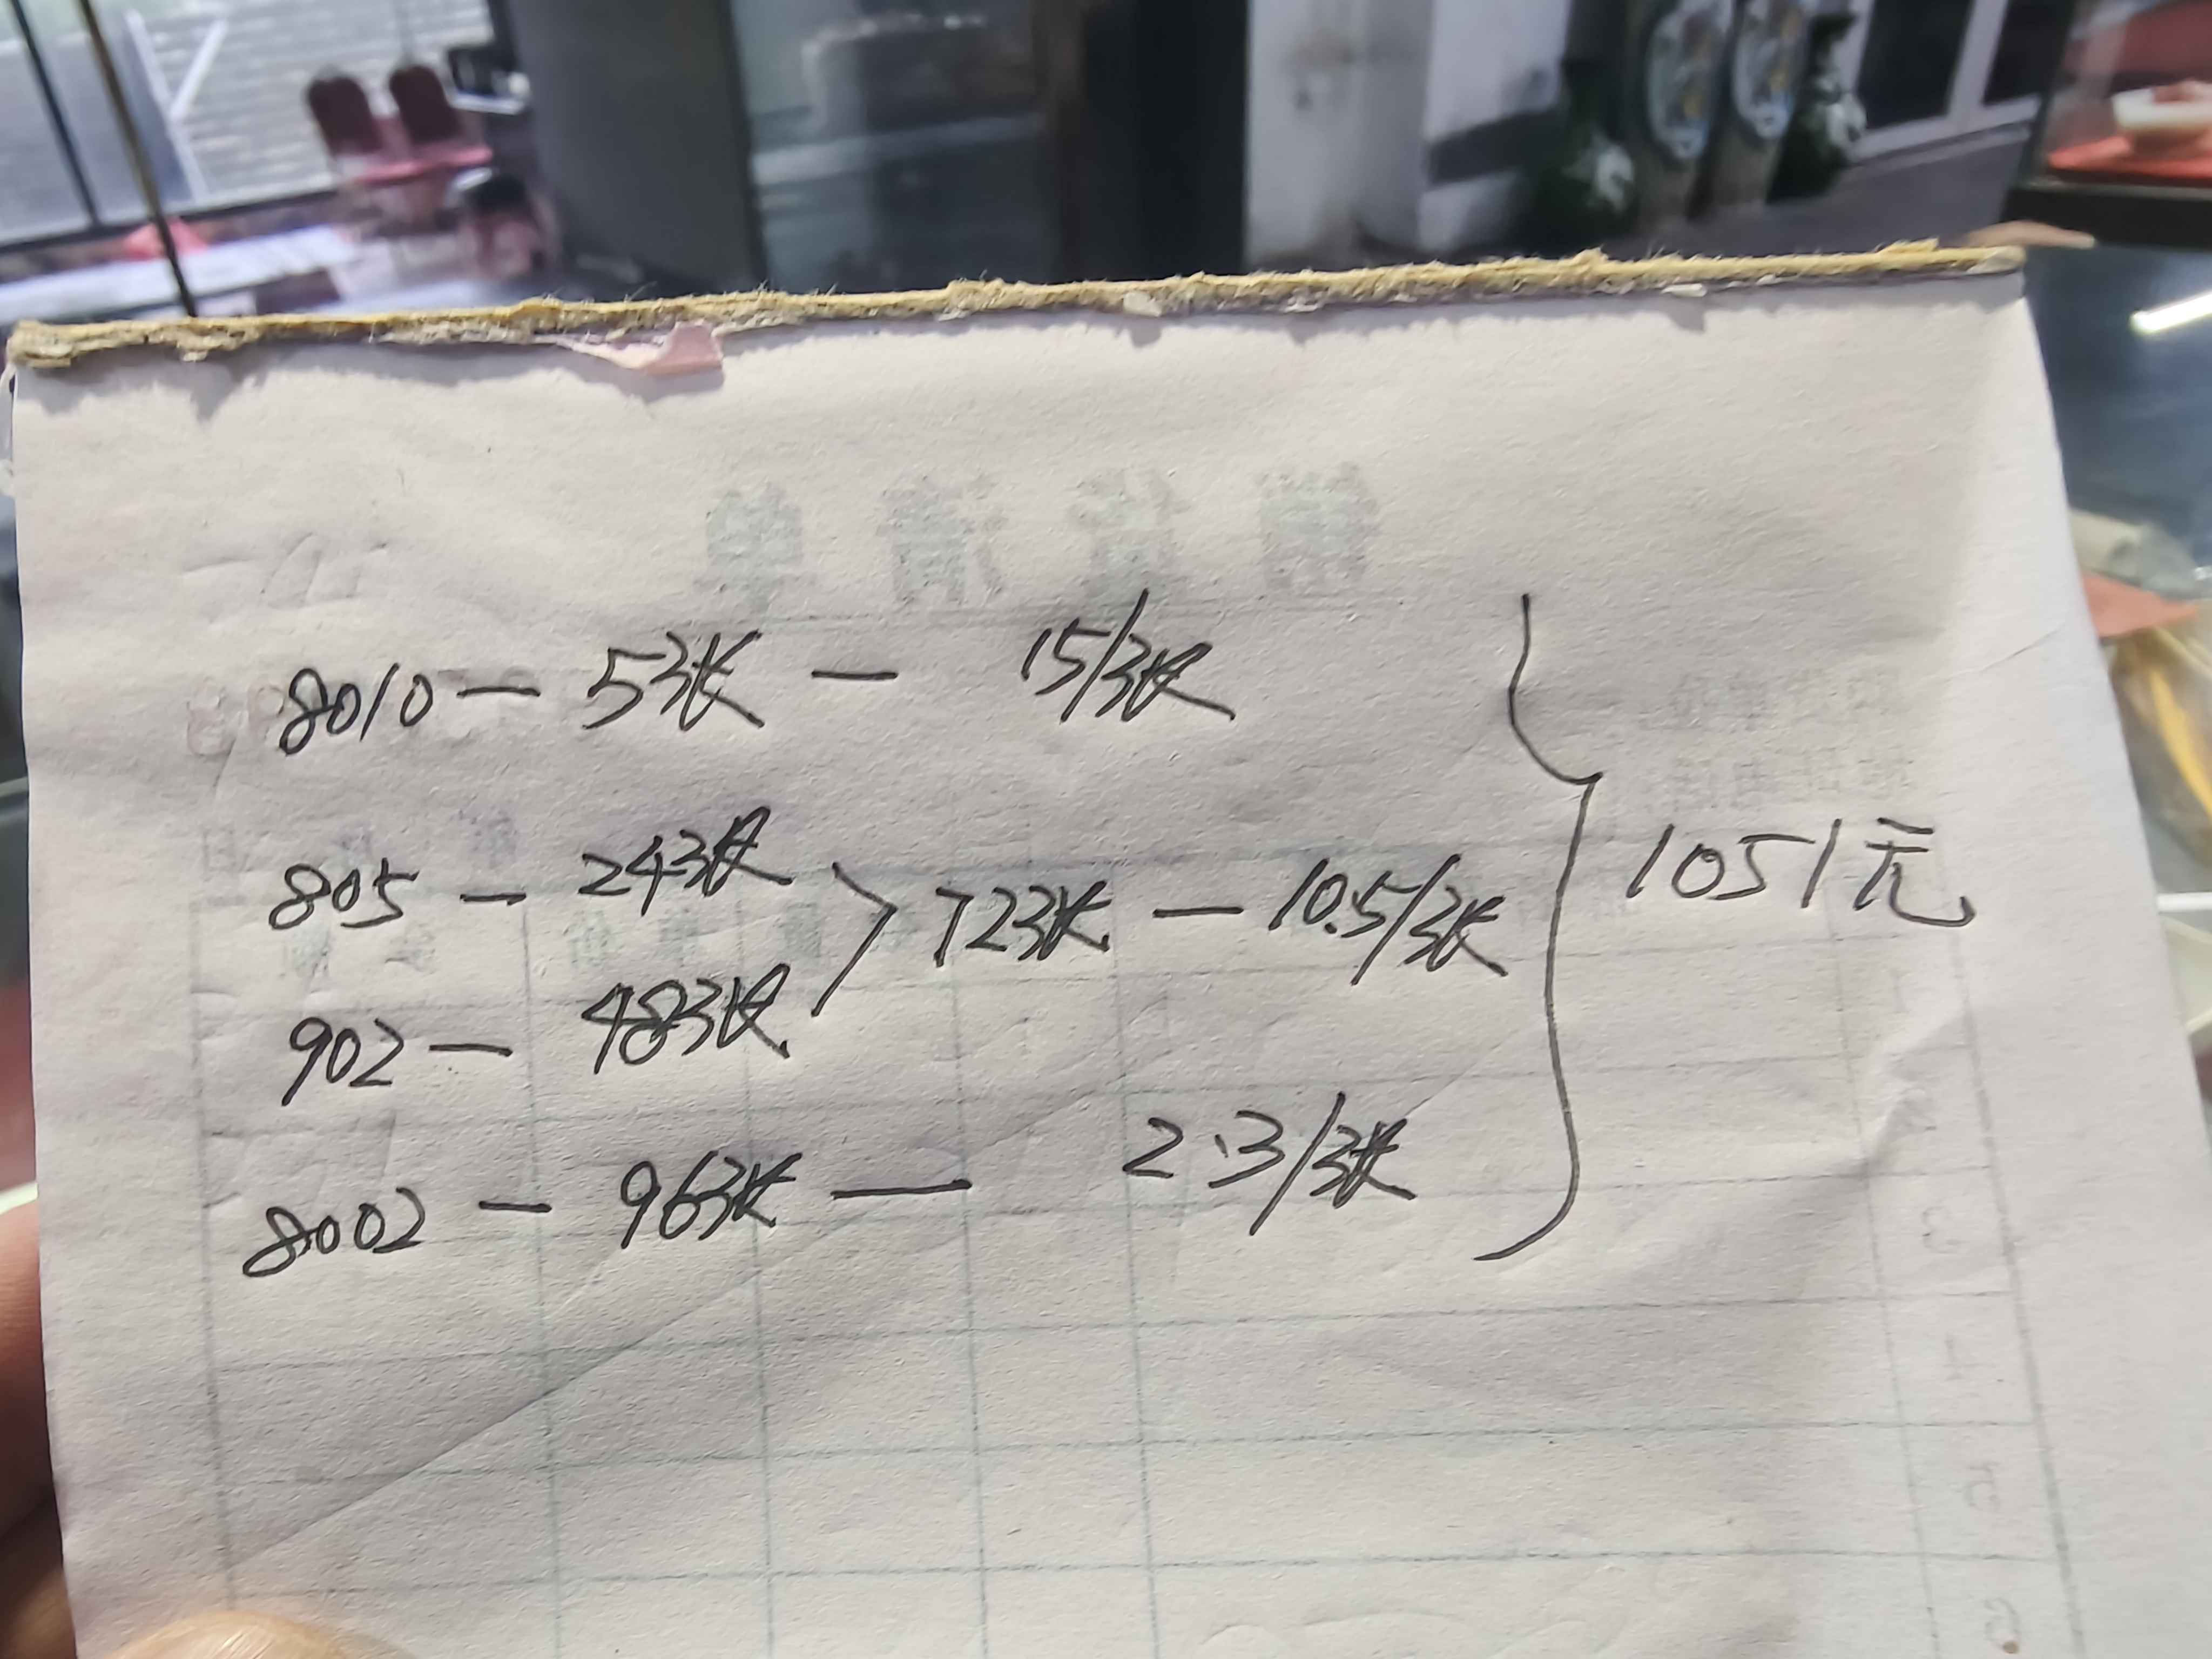 8010 — 5张 — 15/张
805 — 24张
72张 — 10.5/张
902 — 48张
8002 — 96张 — 2.3/张
1051元